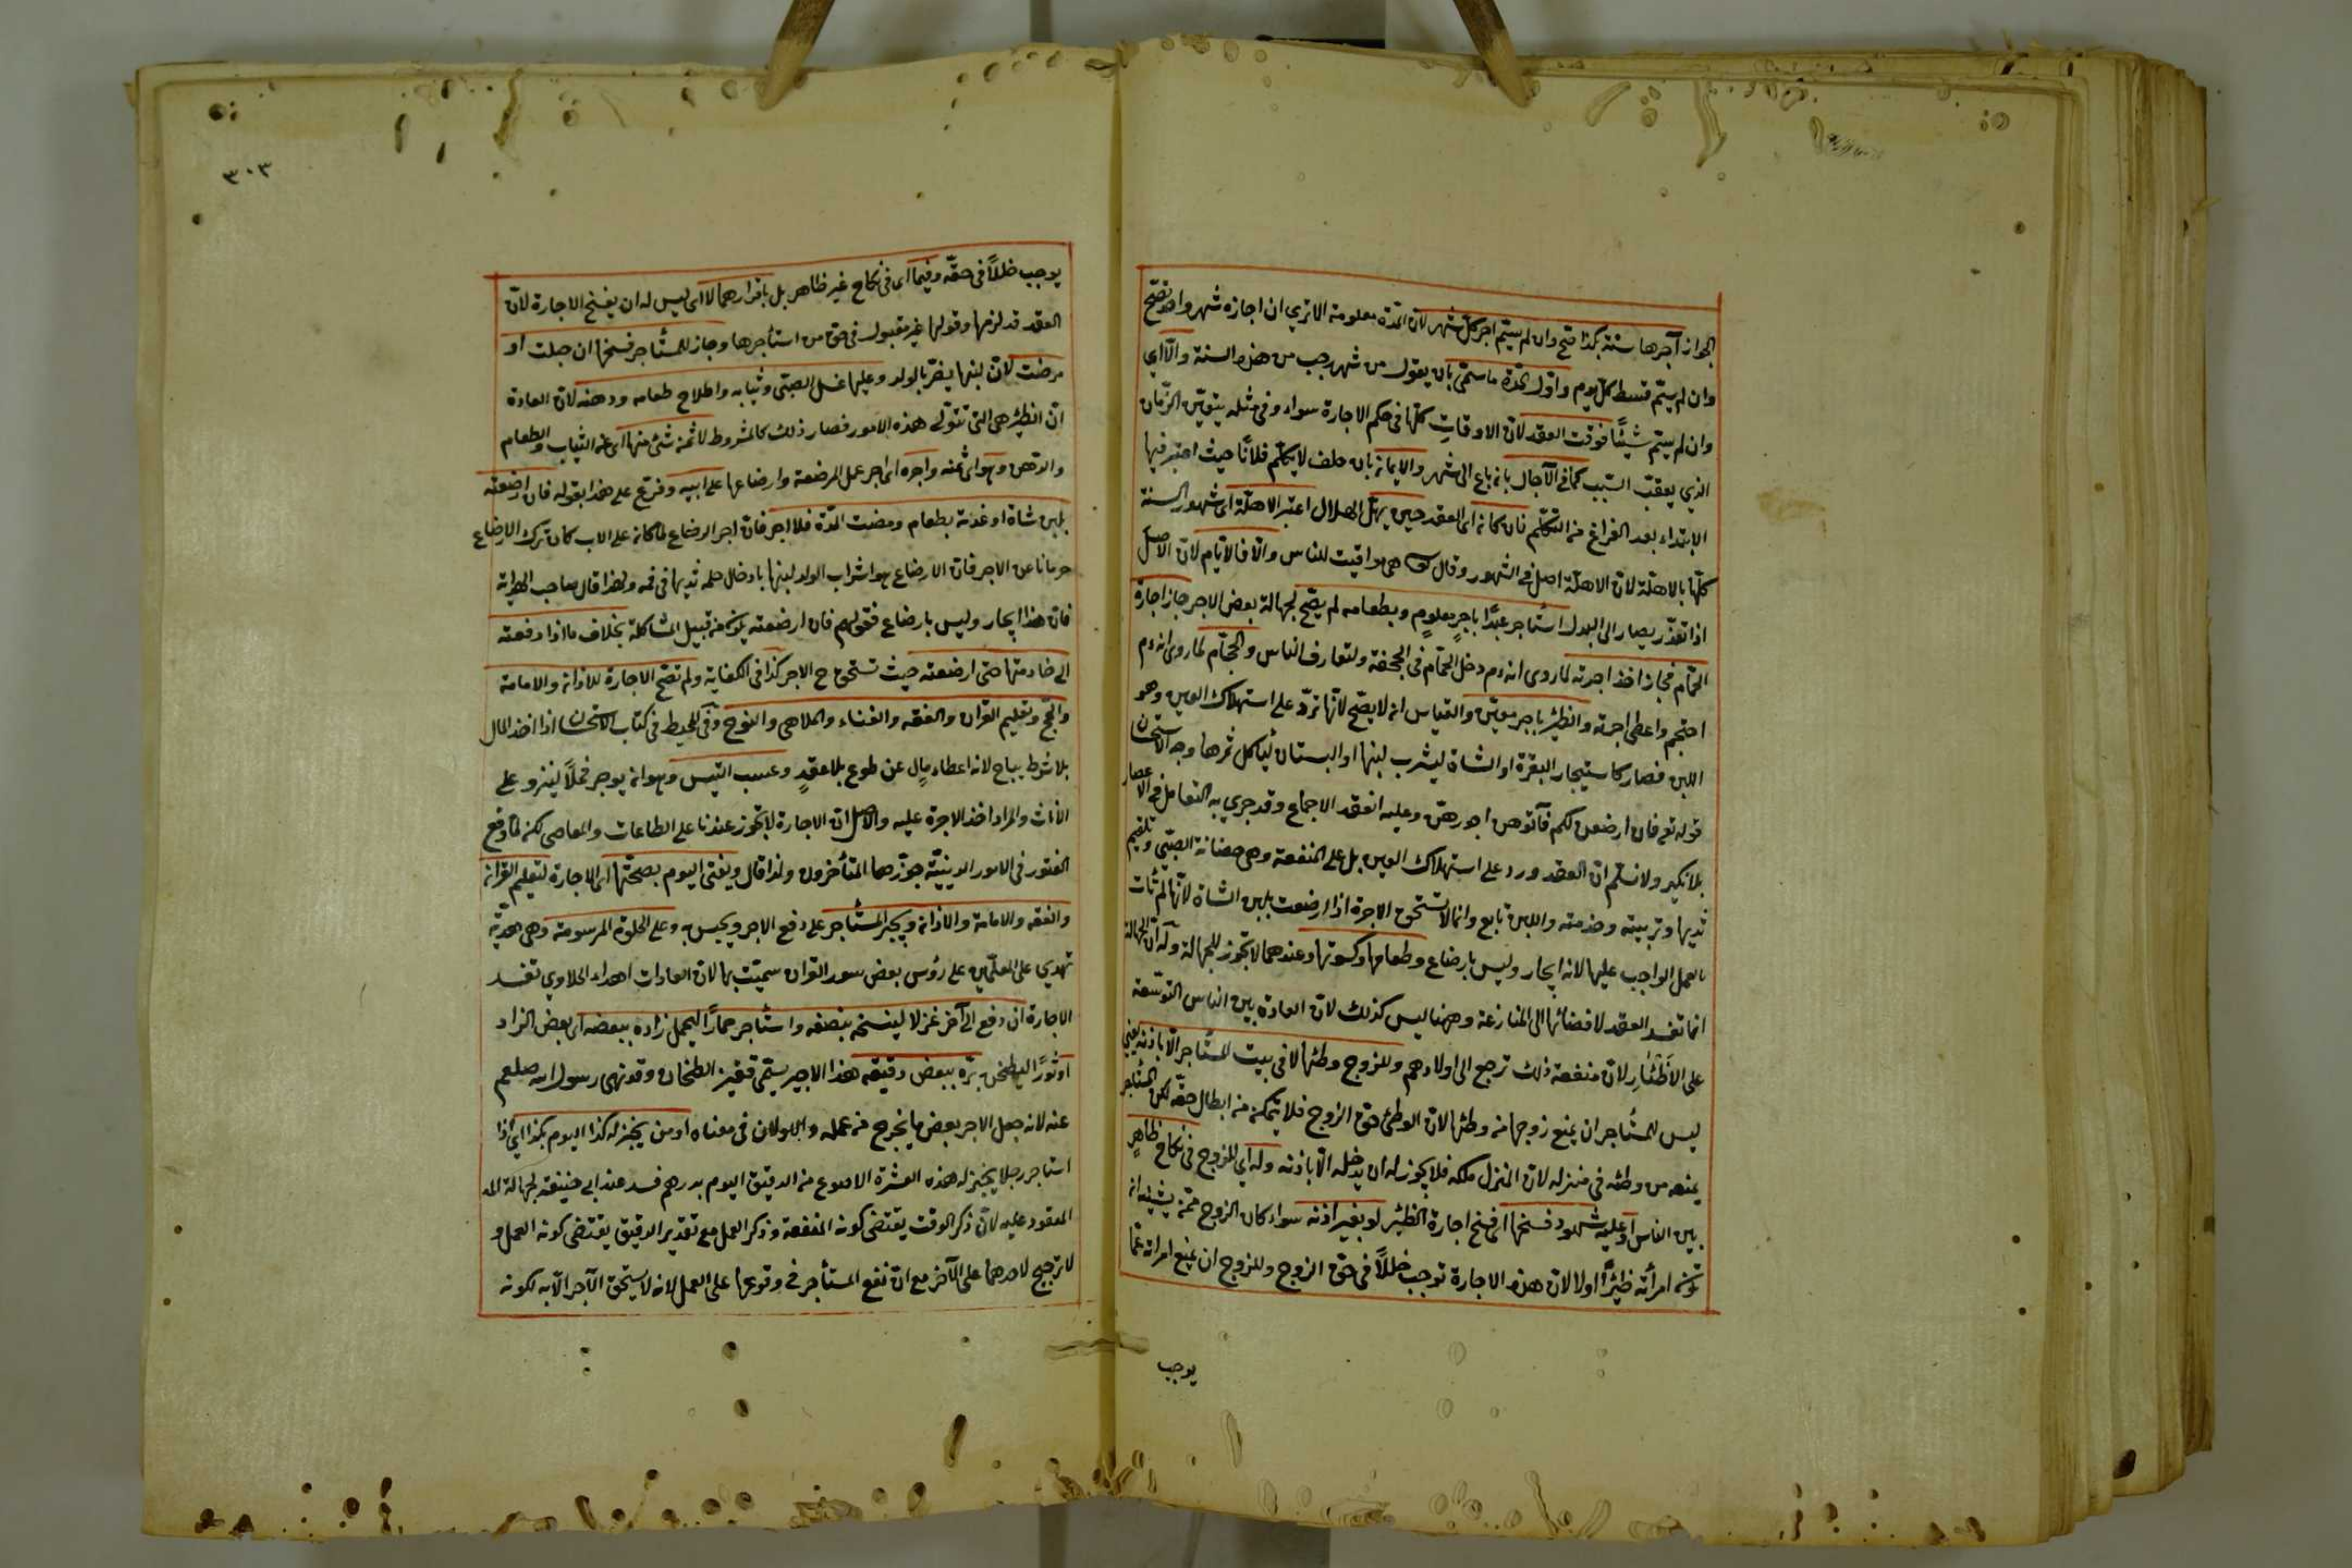 الجواز آجرها سنة بكذا صح وان لم يسم اجر كل شهر لان المدة معلومة الا تري ان اجازه شهر واحد تصح
وان لم يسم قسط كل يوم واول المدة ما سمى بان يقول من شهر رجب من هذه السنة والا اي
وان لم يسم شيئا فوقت العقد لان الاوقات كلها في حكم الاجارة سواء وفي مثله يتعين الزمان
الذي يعقب السبب كما في الآجال بانه باع الى شهر والايمانه بان حلف لا يكلم فلانا حيث اعتبر فيها
الابتداء بعد الفراغ من التكلم فان كانه اى العقد حين يهل الهلال اعتبر الاهلة اى شهور السنة
كلها بالاهلة لان الاهلة اصل في الشهور وقال هى مواقيت للناس والا فالايام لان الاصل
اذا تعذر يصار الى البدل استاجر عبدا باجر معلوم وبطعامه لم يصح لجهالة بعض الاجر جاز اجارة
الحمام فجاز اخذ اجرته لما روى انه ءم دخل الحمام فى الجحفة ولتعارف الناس والحجام لما روى انه ءم
احتجم واعطى اجرته والظئر باجر معين والقياس انه لا يصح لانها ترد على استهلاك العين وهو
اللبن فصار كاستيجار البقرة او الشاة ليشرب لبنها او البستان ليأكل ثمرها وجه الاستحسان
قوله تع فان ارضعن لكم فآتوهن اجورهن وعليه انعقد الاجماع وقد جري به التعامل في الاعصار
بلا نكير ولا نسلم ان العقد ورد على استهلاك العين بل على المنفعة وهى حضانة الصبي وتلقيم
ثديها وتربيته وخدمته واللبن تابع وانما لا تستحق الاجرة اذا ارضعت بلبن الشاة لانها لم تأت
بالعمل الواجب عليها لانه ايجار وليس بارضاع وطعامها وكسوتها وعندهما لا تجوز للجهالة وله ان الجهالة
انما تفسد العقد لافضائها الى المنازعة وههنا ليس كذلك لان العادة بين الناس التوسعة
على الاظئار لان منفعة ذلك ترجع الى اولادهم وللزوج وطئها لا في بيت المستاجر الا باذنه يعني
ليس للمستاجر ان يمنع زوجها من وطئها لان الوطئ حق الزوج فلا يتمكن من ابطال حقه لكن المستاجر
يمنعه من وطئه في منزله لان المنزل ملكه فلا يجوز له ان يدخله الا باذنه وله اي للزوج في نكاح ظاهر
بين الناس او عليه شهود فسخها اى فسخ اجارة الظئر لو بغير اذنه سواء كان الزوج ممن يشينه ان
تكون امرأته ظئرا اولا لان هذه الاجارة توجب خللا في حق الزوج وللزوج ان يمنع امراته عما
يوجب
٣٠٣
يوجب خللا في حقه وفيما اى فى نكاح غير ظاهر بل باقرارهما لا اى ليس له ان يفسخ الاجارة لان
العقد قد لزمها وقولها غير مقبول فى حق من استأجرها وجاز للمستاجر فسخها ان حبلت او
مرضت لان لبنها يضر بالولد وعليها غسل الصبي وثيابه واصلاح طعامه ودهنه لان العادة
ان الظئر هى التى تتولى هذه الامور فصار ذلك كالمشروط لا ثمن شئ منها اى من الثياب والطعام
والدهن وهو اى ثمنه واجره اى اجر عمل المرضعة وارضاعها على ابيه وفرع على هذا بقوله فان ارضعته
بلبن شاة او غذته بطعام ومضت المدة فلا اجر فان اجر الرضاع لما كانه على الاب كان ترك الارضاع
حرمانا عن الاجر فان الارضاع هو اشراب الولد لبنها بادخال حلمة ثديها في فمه ولهذا قال صاحب الهداية
فان هذا ايجار وليس بارضاع فقولهم فان ارضعته يكون من قبيل المشاكلة بخلاف ما اذا دفعته
الى خادمتها حتى ارضعته حيث تستحق ح الاجر كذا فى الكفاية ولم تصح الاجارة للاذانه والامامة
والحج وتعليم القران والفقه والغناء والملاهى والنوح وفى المحيط فى كتاب الاستحسان اذا اخذ المال
بلا شرط يباح لانه اعطاء مال عن طوع بلا عقد وعسب التيس وهو ان يوجر فحلا لينزو على
الاناث والمراد اخذ الاجرة عليه والاصل ان الاجارة لا تجوز عندنا على الطاعات والمعاصى لكن لما وقع
الفتور فى الامور الدينية جوزها المتأخرون ولذا قال ويفتى اليوم بصحتها اى الاجارة لتعليم القران
والفقه والامامة والاذانه ويجبر المستأجر على دفع الاجر ويحبس به وعلى الحلوة المرسومة وهى هدية
تهدي على المعلمين على رؤس بعض سور القران سميت بها لان العادات اهداء الحلاوي تفسد
الاجارة ان دفع الى آخر غزلا لينسجه بنصفه واستاجر حمارا ليحمل زاده ببعضه اى بعض الزاد
او ثورا ليطحن بره ببعض دقيقه هذا الاجير يسمى قفيز الطحان وقد نهى رسول الله صلعم
عنه لانه جعل الاجر بعض ما يخرج من عمله والاولان فى معناه او من يخبز له كذا اليوم بكذا اي اذا
استاجر رجلا يخبز له هذه العشرة الاصوع من الدقيق اليوم بدرهم فسد عند ابي حنيفة لجهالة
المعقود عليه لان ذكر الوقت يقتضى كونه المنفعة وذكر العمل مع تقدير الدقيق يقتضى كونه العمل و
لا ترجيح لاحدهما على الآخر مع ان نفع المستأجر فى وقوعها على العمل لانه لا يستحق الآجر الا به لكونه